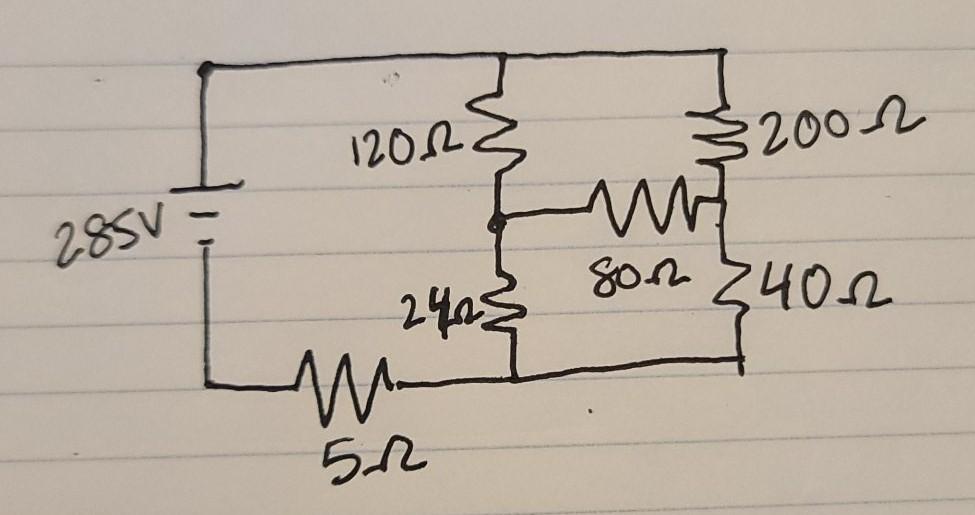 120Ω
200Ω
285V
80Ω
24Ω
40Ω
5Ω